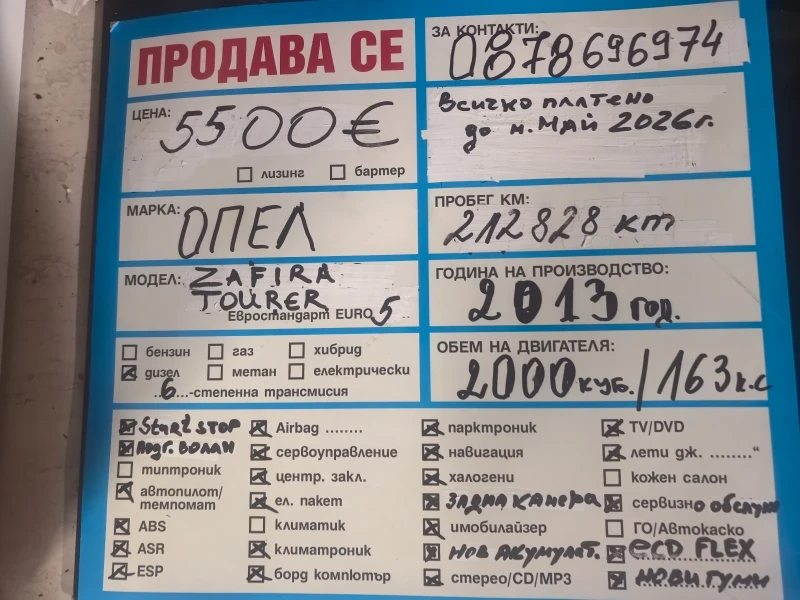 ПРОДАВА СЕ
ЗА КОНТАКТИ:
0878696974
ЦЕНА:
5500€
☐ лизинг ☐ бартер
Всичко платено
до м. Май 2026г.
МАРКА:
ОПЕЛ
ПРОБЕГ КМ:
212828 km
МОДЕЛ: ZAFIRA
TOURER
Евростандарт EURO 5
ГОДИНА НА ПРОИЗВОДСТВО:
2013 год.
☐ бензин ☐ газ ☐ хибрид
☒ дизел ☐ метан ☐ електрически
..6...-степенна трансмисия
ОБЕМ НА ДВИГАТЕЛЯ:
2000 куб. / 163 к.с
☒ Start STOP
☒ Подг. ВОЛАН
☐ типтроник
☒ автопилот/
темпомат
☒ ABS
☒ ASR
☒ ESP
☒ Airbag ........
☒ сервоуправление
☒ центр. закл.
☒ ел. пакет
☐ климатик
☒ климатроник
☒ борд компютър
☒ парктроник
☒ навигация
☒ халогени
☒ ЗАДНА КАМЕРА
☒ имобилайзер
☒ НОВ АКУМУЛАТ.
☒ стерео/CD/MP3
☒ TV/DVD
☒ лети дж. ........“
☐ кожен салон
☒ сервизно обслуж
☐ ГО/Автокаско
☒ eco FLEX
☒ НОВИ ГУМИ